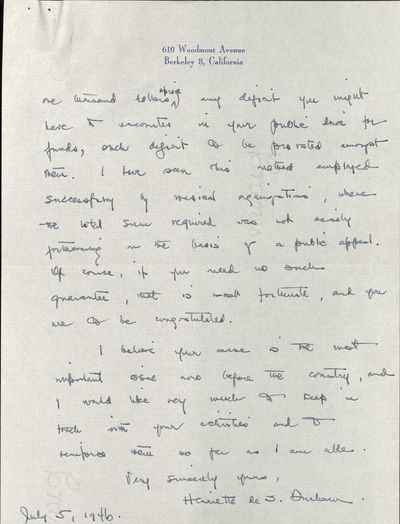 610 Woodmont Avenue
Berkeley 8, California
one thousand dollars apiece any deficit you might
have to encounter in your public drive for
funds, such deficit to be prorated amongst
them. I have seen this method employed
successfully by musical organizations, where
the total sum required was not easily
forthcoming on the basis of a public appeal.
Of course, if you need no such
guarantee, that is most fortunate, and you
are to be congratulated.
I believe your cause is the most
important issue now before the country, and
I would like very much to keep in
touch with your activities and to
reinforce them so far as I am able.
Very sincerely yours,
Henriette de S.
July 5, 1946.